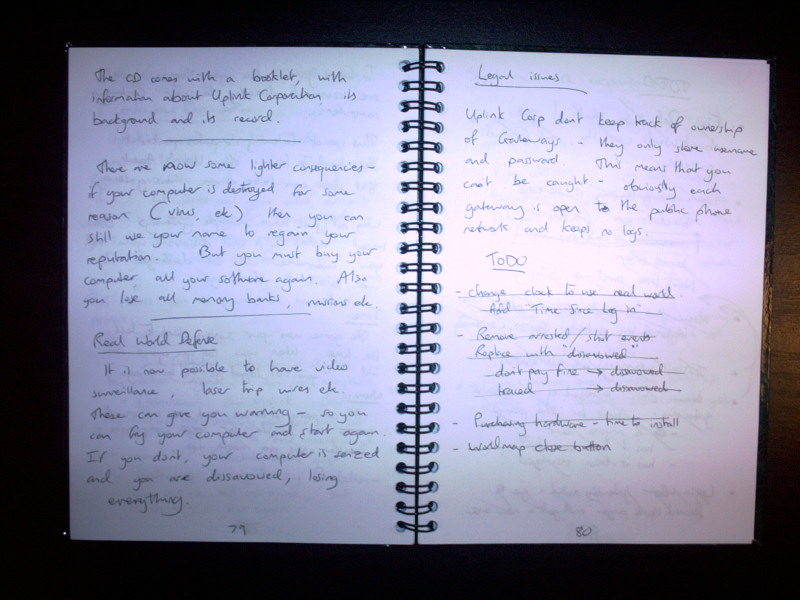 The CD comes with a booklet, with
information about Uplink Corporation its
background and its record.
There are now some lighter consequences -
if your computer is destroyed for some
reason (virus, etc) then you can
still use your name to regain your
reputation. But you must buy your
computer, all your software again. Also
you lose all memory banks, missions etc.
Real World Defense
It is now possible to have video
surveillance, laser trip wires etc.
These can give you warning - so you
can fry your computer and start again.
If you dont, your computer is seized
and you are dissavowed, losing
everything.
79
Legal issues
Uplink Corp dont keep track of ownership
of Gateways - they only store username
and password. This means that you
cant be caught - obviously each
gateway is open to the public phone
network and keeps no logs.
ToDO
- Change clock to use real world.
Add "Time Since Log in"
- Remove arrested / shut events
Replace with "dissavowed"
dont pay fine → dissavowed
traced → dissavowed
- Purchasing hardware - time to install
- World map close button
80